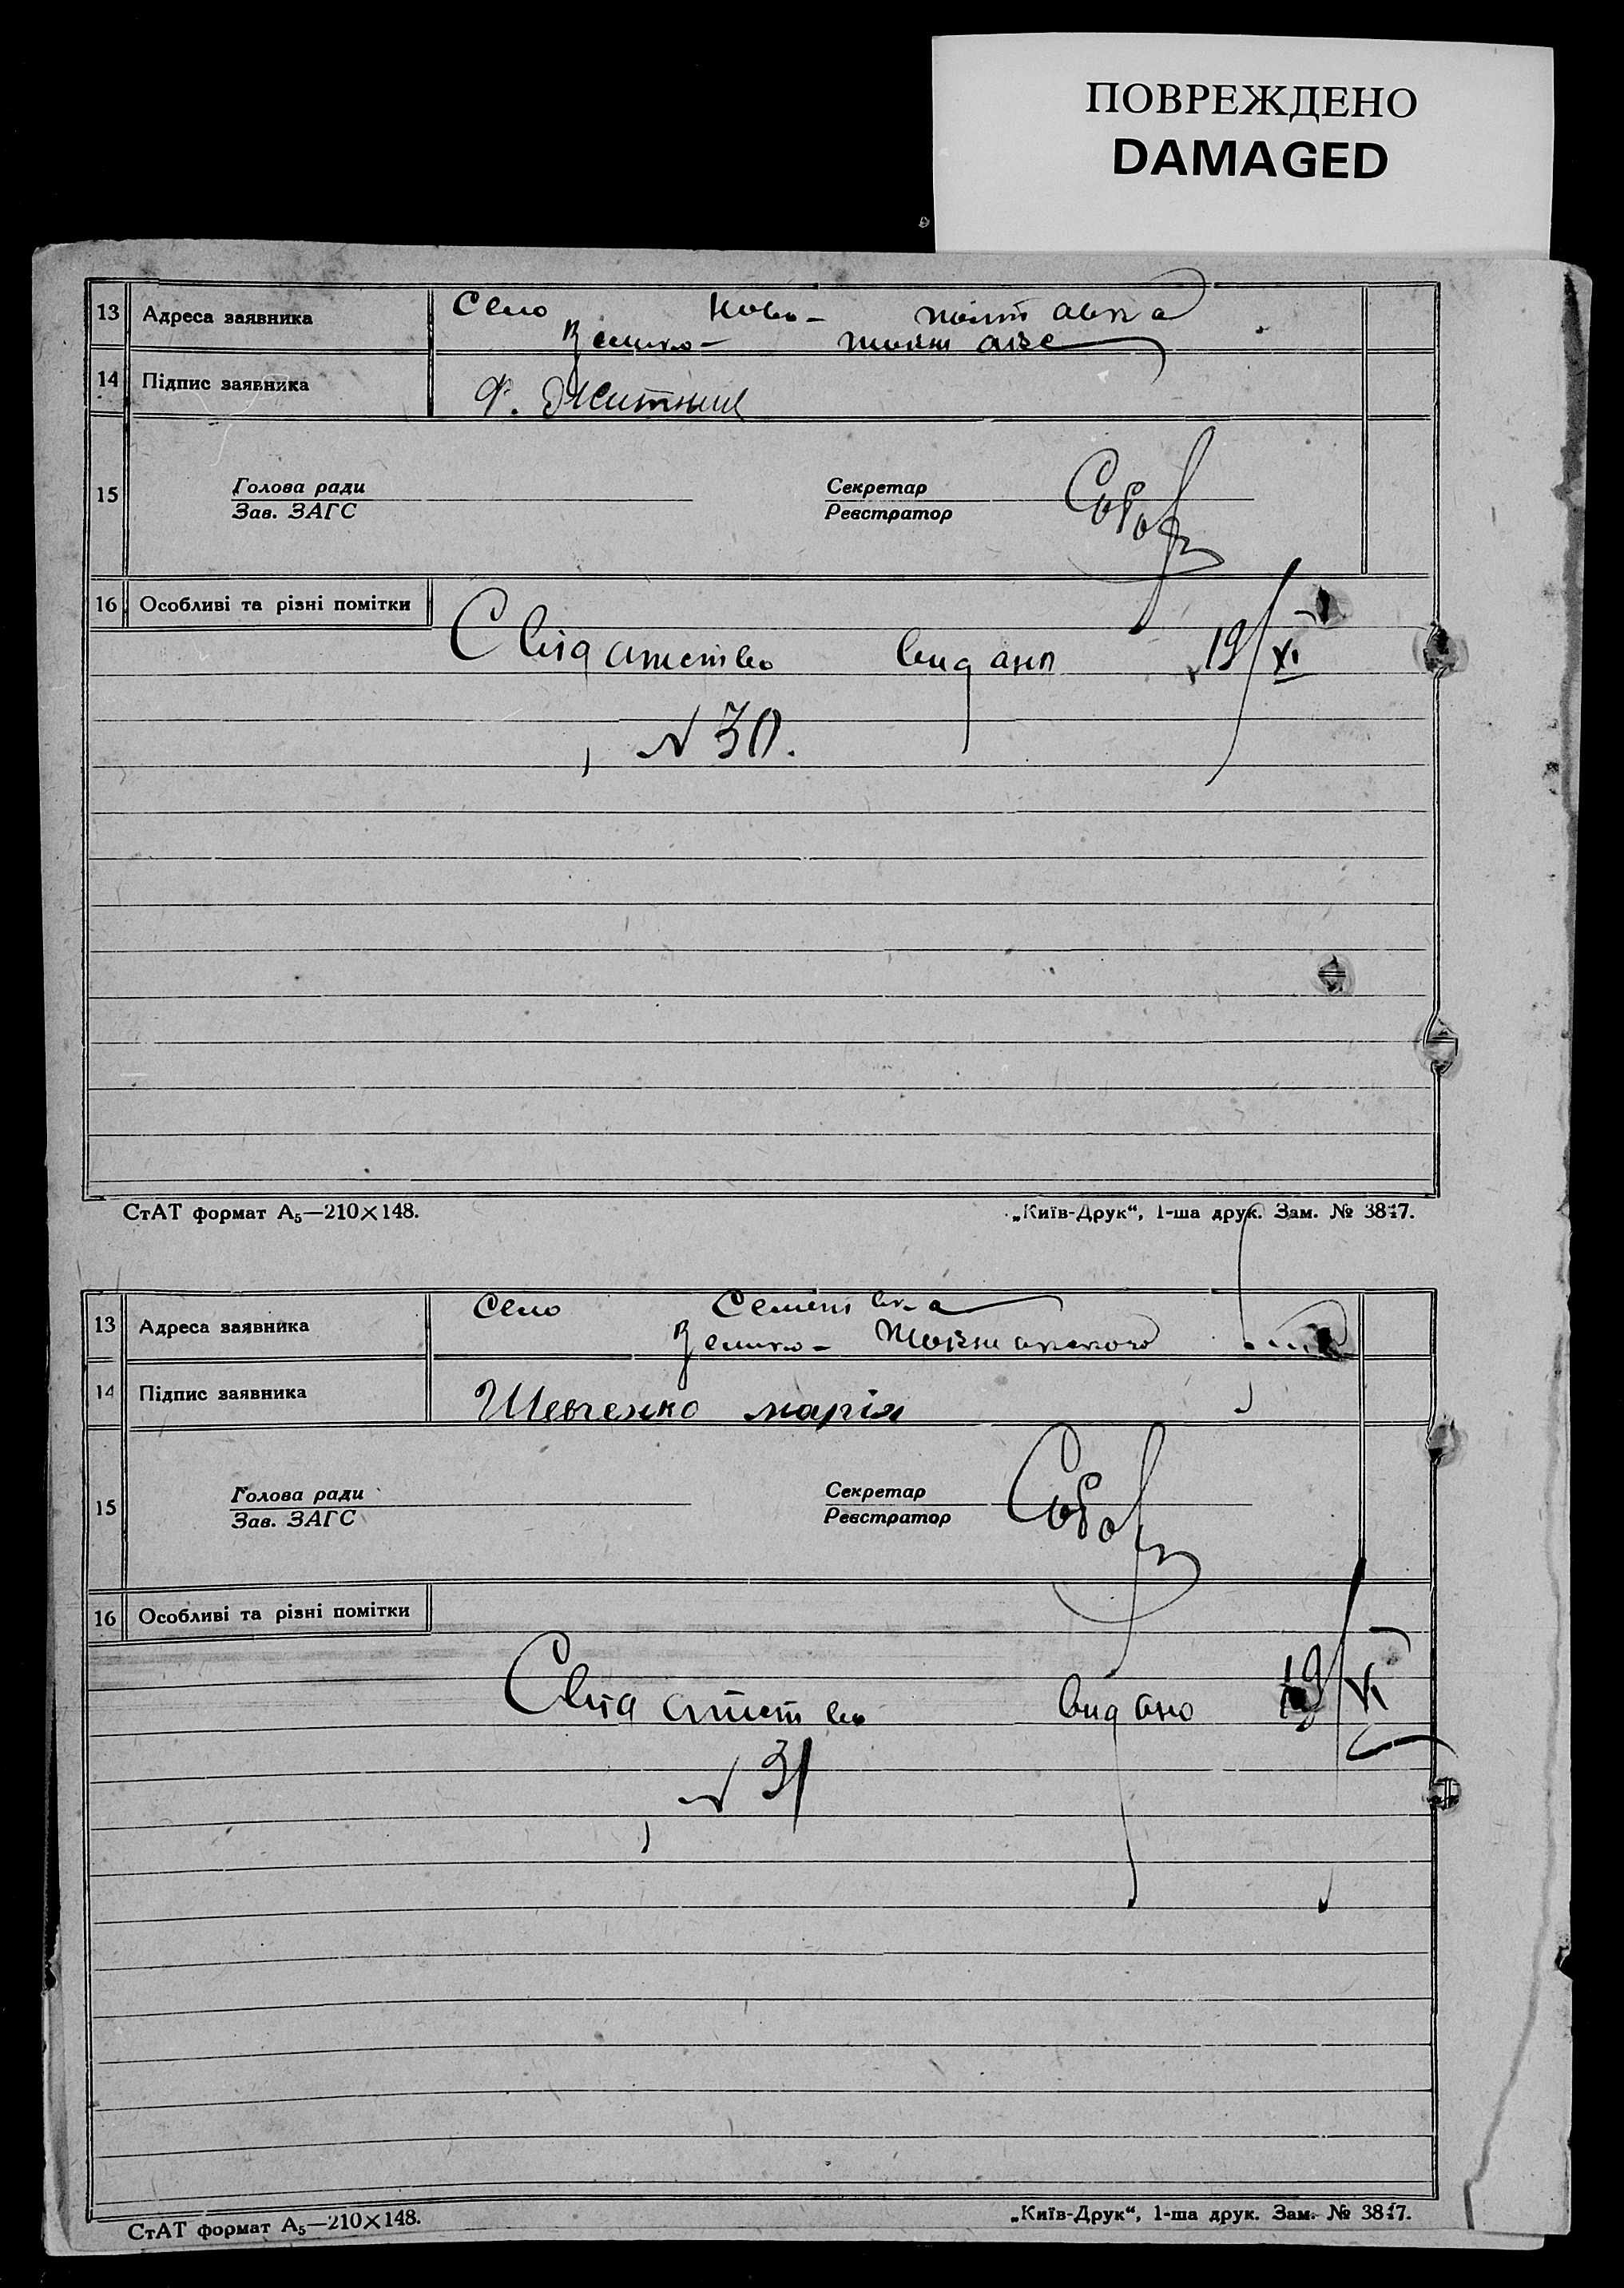 ПОВРЕЖДЕНО
DAMAGED
13 Адреса заявника Село Ново- полтавка
Велико-
14 Підпис заявника Ф. Житник
15 Голова ради Секретар
Зав. ЗАГС Реєстратор
16 Особливі та різні помітки
Свідатство видано 19/XI
N 30.
СтАТ формат А5—210×148. „Київ-Друк“, 1-ша друк. Зам. № 3817.
13 Адреса заявника Село Семенівка
Велико- Токмакского
14 Підпис заявника Шевченко марія
15 Голова ради Секретар
Зав. ЗАГС Реєстратор
16 Особливі та різні помітки
Свідатство видано 19/XI
N 31
СтАТ формат А5—210×148. „Київ-Друк“, 1-ша друк. Зам. № 3817.